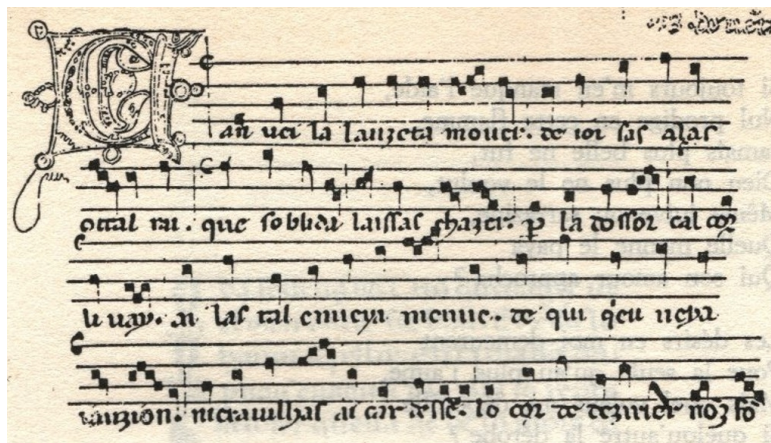 Can vei la lauzeta mover. de ioi sas alas
contral rai. que soblida laissas chazer. p la dossor cal cor
li vay. ai las tal enueya menue. de qui qeu ueya
iauzion. merauilhas ai car desse. lo cor de dezirier nom fo